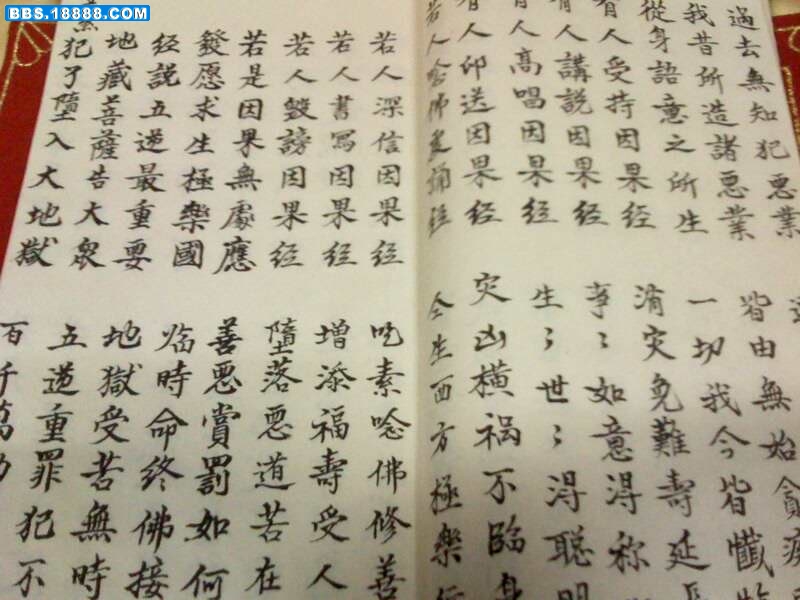 BBS.18888.COM
過去無知犯惡業
我昔所造諸惡業 皆由無始貪
從身語意之所生 一切我今皆懺
有人受持因果經 消灾免難壽延
有人講説因果經 事〻如意得称
有人高唱因果經 生〻世〻得聰明
有人印送因果經 灾凶横祸不臨身
若人唸佛誦經 今生西方極樂
若人深信因果经 吃素唸佛修善
若人書寫因果经 增添福壽受人
若人毁謗因果经 墮落恶道苦在
若是因果無處應 善恶賞罰如何
發愿求生極樂國 临時命终佛接
经説五逆最重要 地獄受苦無時
地藏菩薩告大衆 五逆重罪犯不
犯了墮入大地獄 百千萬